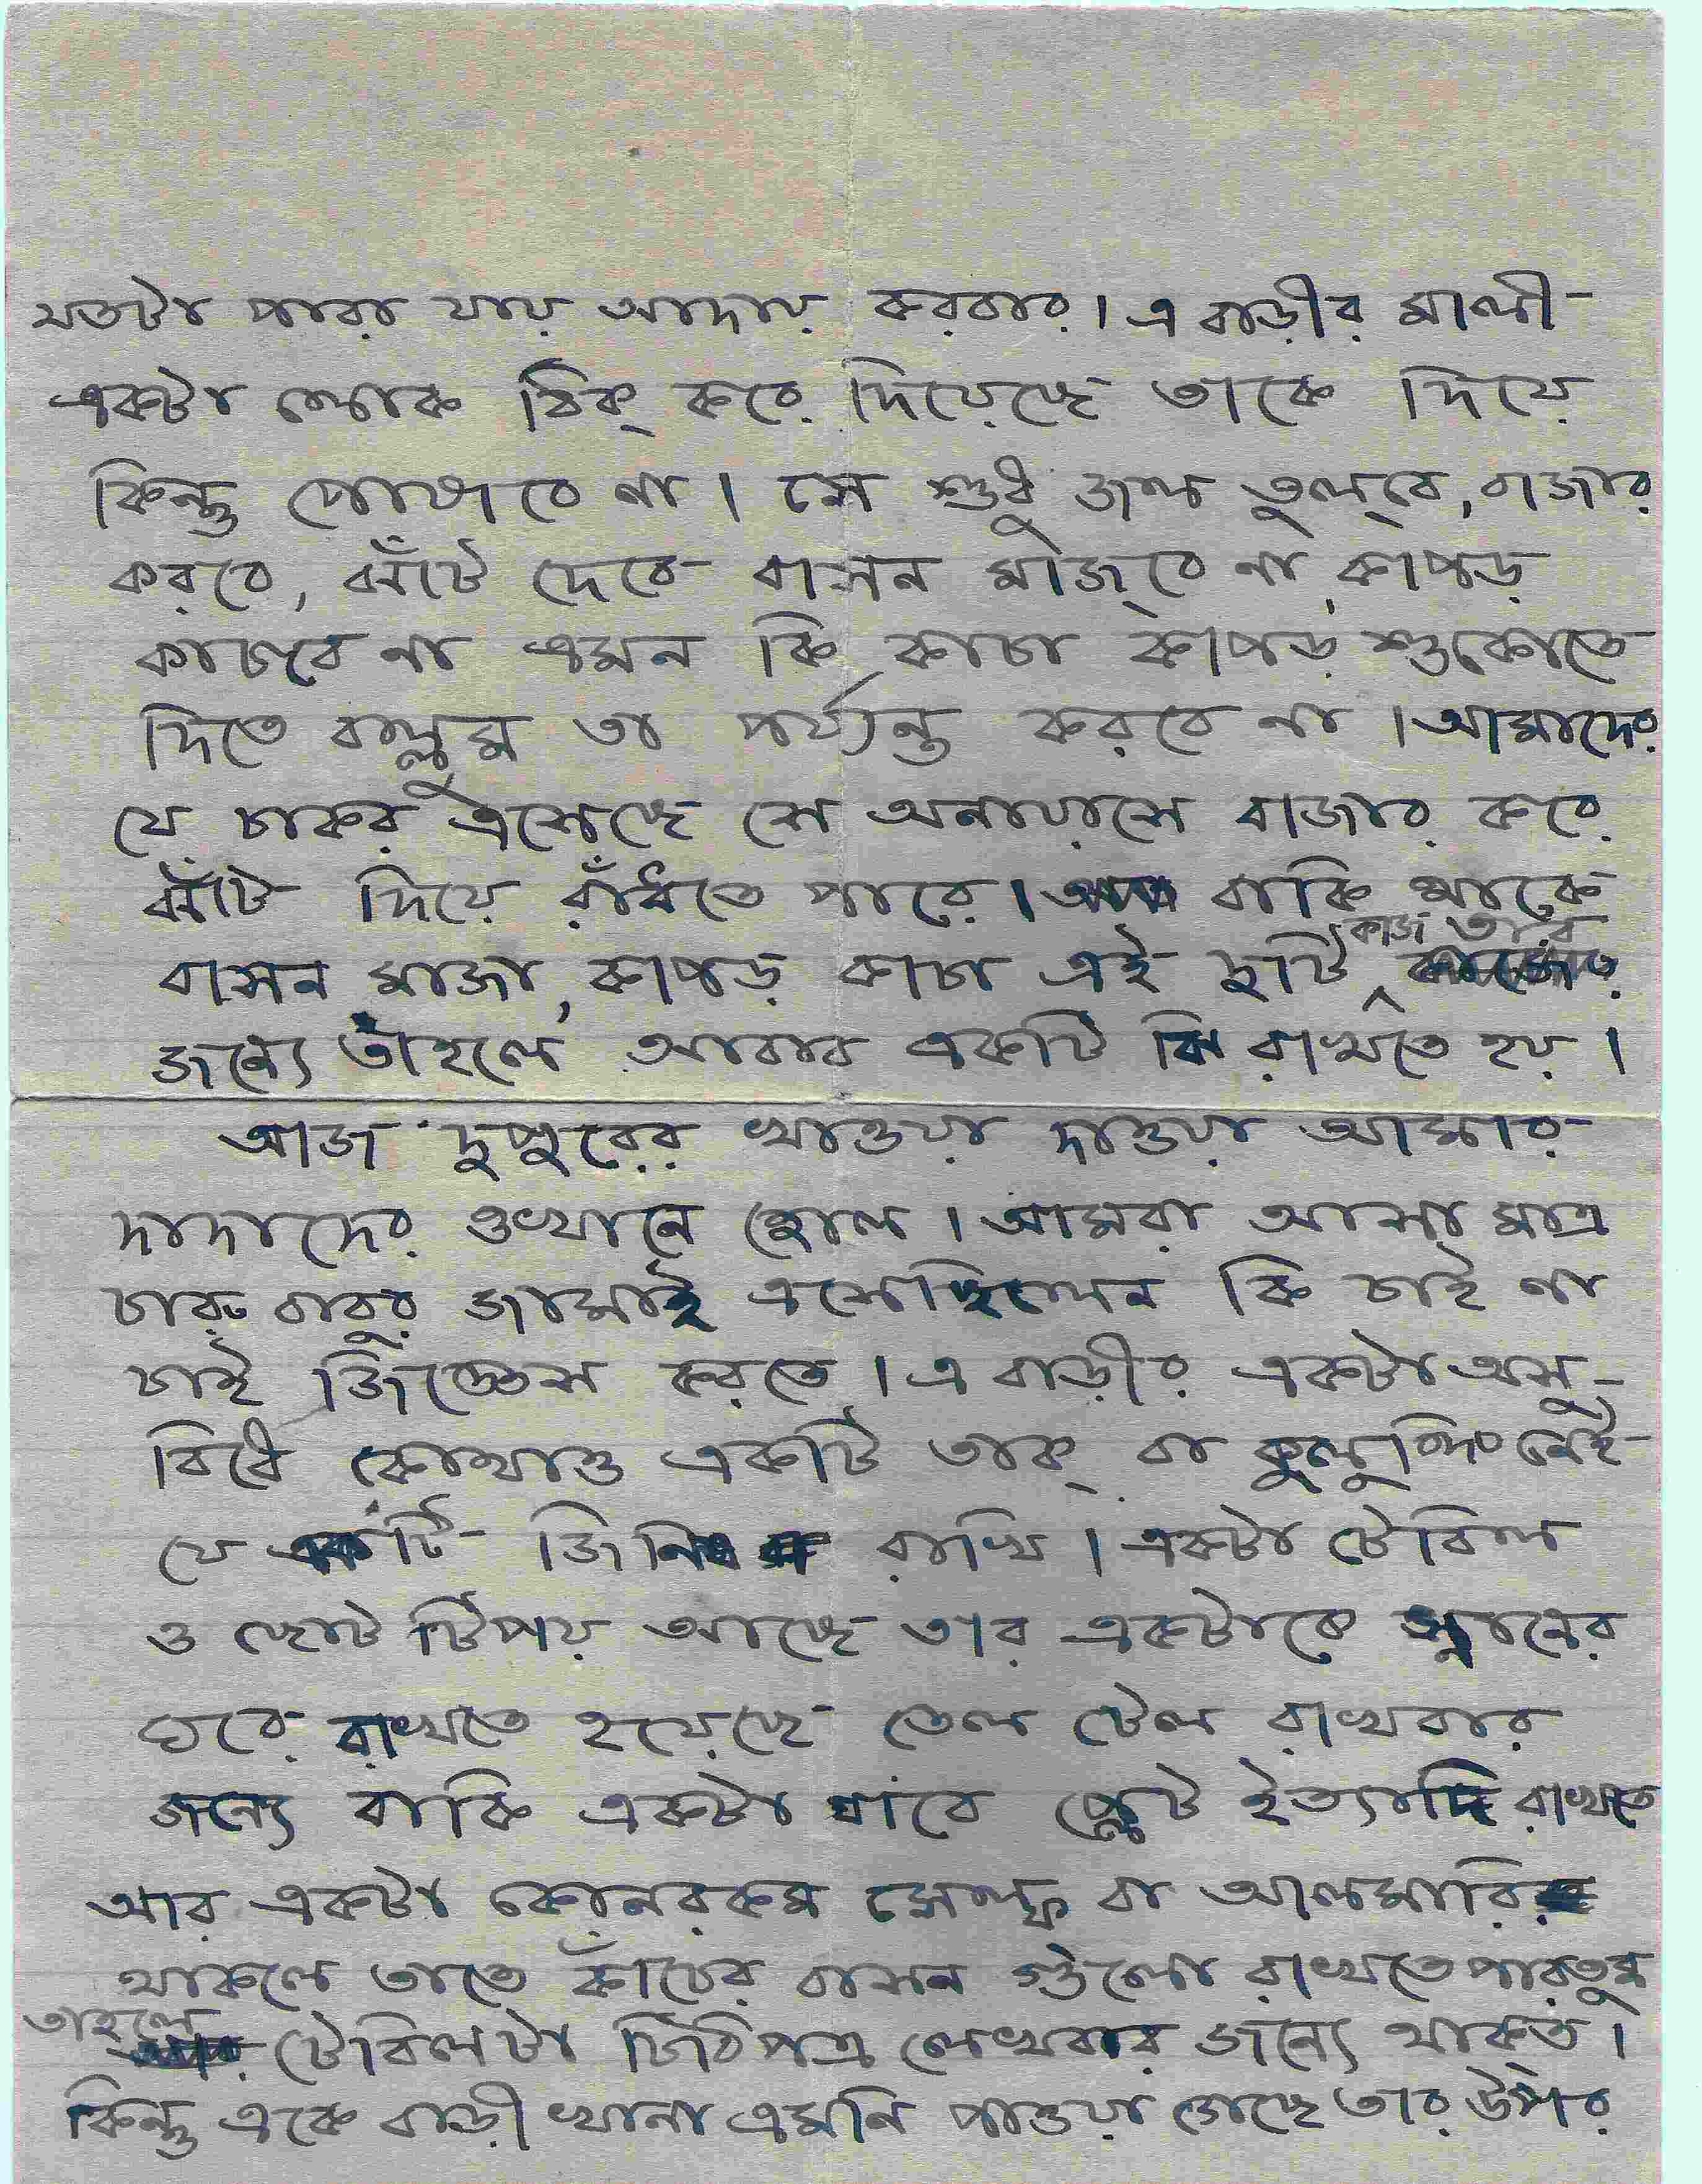 যতটা পারা যায় আদায় করবার। এ বাড়ীর মালী
একটা লোক ঠিক্ করে দিয়েছে তাকে দিয়ে
কিন্তু পোষাবে না। সে শুধু জল তুল্‌বে, বাজার
করবে, ঝাঁট দেবে বাসন মাজ্‌বে না, কাপড়
কাচবে না এমন কি কাচা কাপড় শুকোতে
দিতে বল্লুম তা পর্য্যন্ত করবে না। আমাদের
যে চাকর এসেছে সে অনায়াসে বাজার করে
ঝাঁট দিয়ে রাঁধতে পারে। বাকি থাকে
বাসন মাজা, কাপড় কাচা এই দুটি কাজ তার
জন্যে তাহলে আবার একটি ঝি রাখতে হয়।
আজ দুপুরের খাওয়া দাওয়া আমার
দাদাদের ওখানে হোল। আমরা আসা মাত্র
চারু বাবুর জামাই এসেছিলেন কি চাই না
চাই জিজ্ঞেস করতে। এ বাড়ীর একটা অসু-
বিধে কোথাও একটি তাক্ বা কুলুঙ্গি নেই
যে একটি জিনিষ রাখি। একটা টেবিল
ও ছোট টিপয় আছে তার একটাকে স্নানের
ঘরে রাখতে হয়েছে তেল টেল রাখবার
জন্যে বাকি একটা যাবে প্লেট ইত্যাদি রাখতে
আর একটা কোনরকম সেল্ফ বা আলমারি
থাকলে তাতে কাঁচের বাসন গুলো রাখতে পারতুম
তাহলে টেবিলটা চিঠিপত্র লেখবার জন্যে থাক্‌ত।
কিন্তু একে বাড়ী খানা এমনি পাওয়া গেছে তার উপর